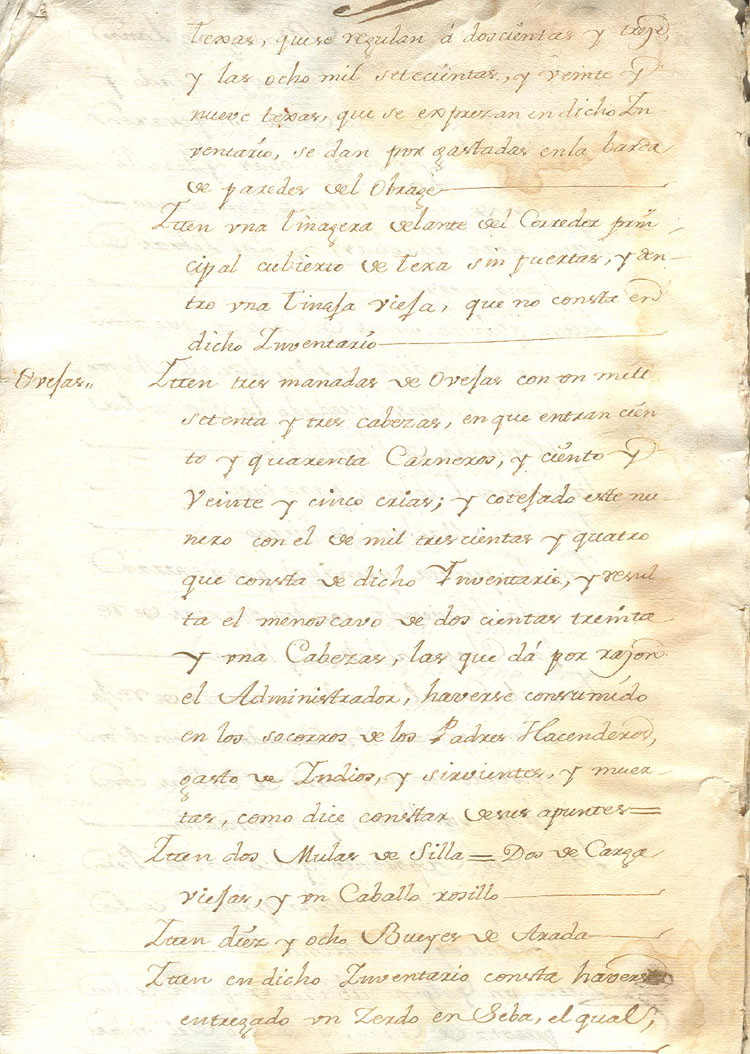 texas, que se regulan á doscientas y treze
y las ocho mil setecientas, y veinte y
nueve texas, que se exprezan en dicho In
ventario, se dan por gastadas en la barda
de paredes del Obrage
Iten vna Tinagera delante del Corredor prin
cipal cubierto de texa sin puertas, y den-
tro vna Tinaja vieja, que no consta en
dicho Inventario
Ovejas,,
Iten tres manadas de Ovejas con vn mill
setenta y tres cabezas, en que entran cien
to y quarenta Carneros, y ciento y
Veinte y cinco crias; y cotejado este nu-
nero con el de mil trescientas y quatro
que consta de dicho Inventario, y resul
ta el menoscavo de dos cientas treinta
y vna Cabezas, las que dá por razon
el Administrador, haverse consumido
en los socorros de los Padres Hacenderos,
gasto de Indios, y sirvientes, y muer-
tas, como dice constar de sus apuntes=
Iten dos Mulas de Silla = Dos de Carga
viejas, y vn Caballo rosillo
Iten diez y ocho Bueyes de Arada
Iten en dicho Inventario consta haverse
entregado vn Zerdo en Seba, el qual,